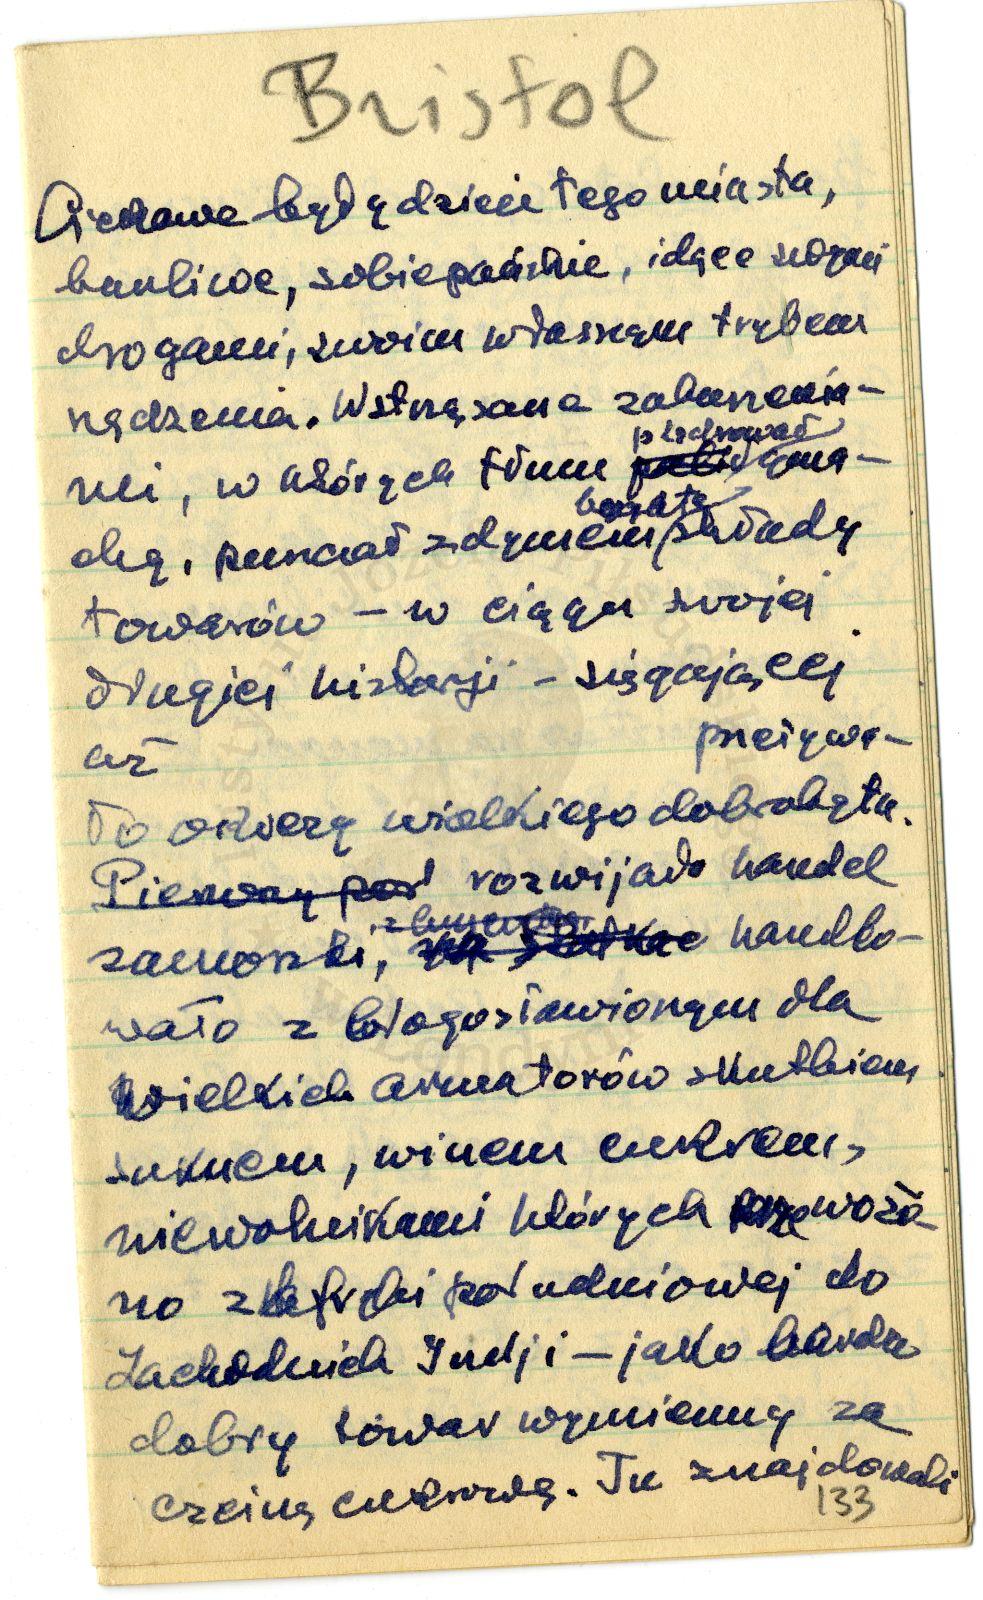 Bristol
Ciekawe były dzieje tego miasta,
burzliwe, sobiepańskie, idące swymi
drogami, swoim własnym trybem
rządzenia. Wstrząsane zaburzenia-
plądrował
mi, w których tłum
bogate
puszczał z dymem składy
towarów – w ciągu swojej
długiej historji – sięgającej
aż przeżywa-
ło okresy wielkiego dobrobytu.
Pierwszy port rozwijało handel
zamorski, handlo-
wało z błogosławionym dla
wielkich armatorów skutkiem
suknem, winem cukrem,
niewolnikami których przewożo
no z Afryki południowej do
Zachodnich Indji – jako bardzo
dobry towar wymienny za
trzcinę cukrową. Tu znajdowali
133